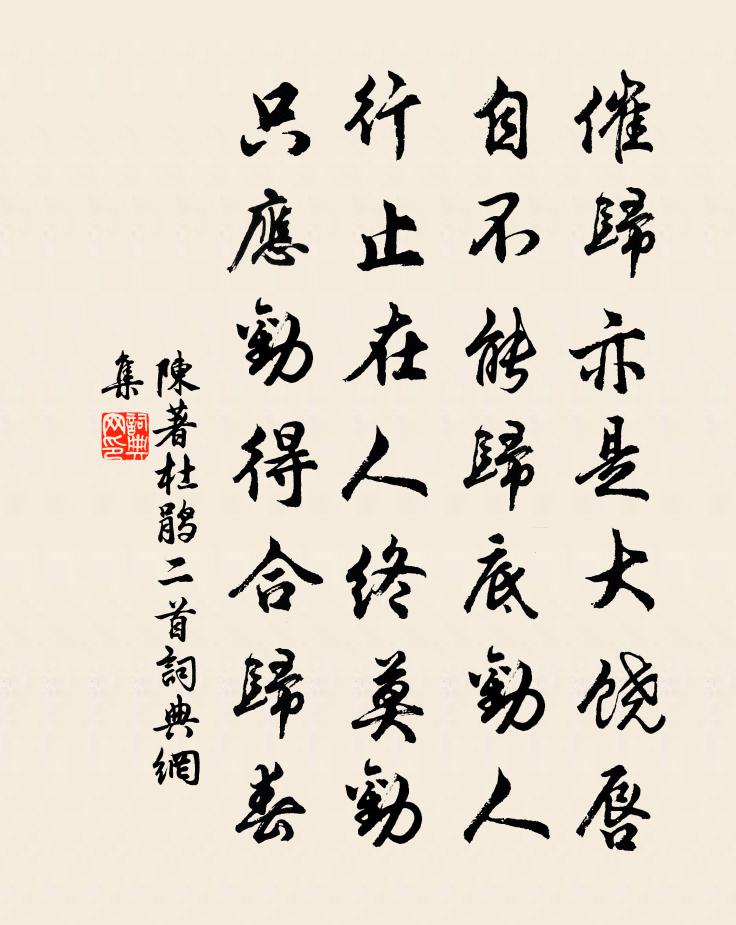 催歸亦是大饒唇
自不能歸底勸人
行止在人終莫勸
只應勸得合歸春
陳著杜鵑二首詞典網
集
詞典
网印